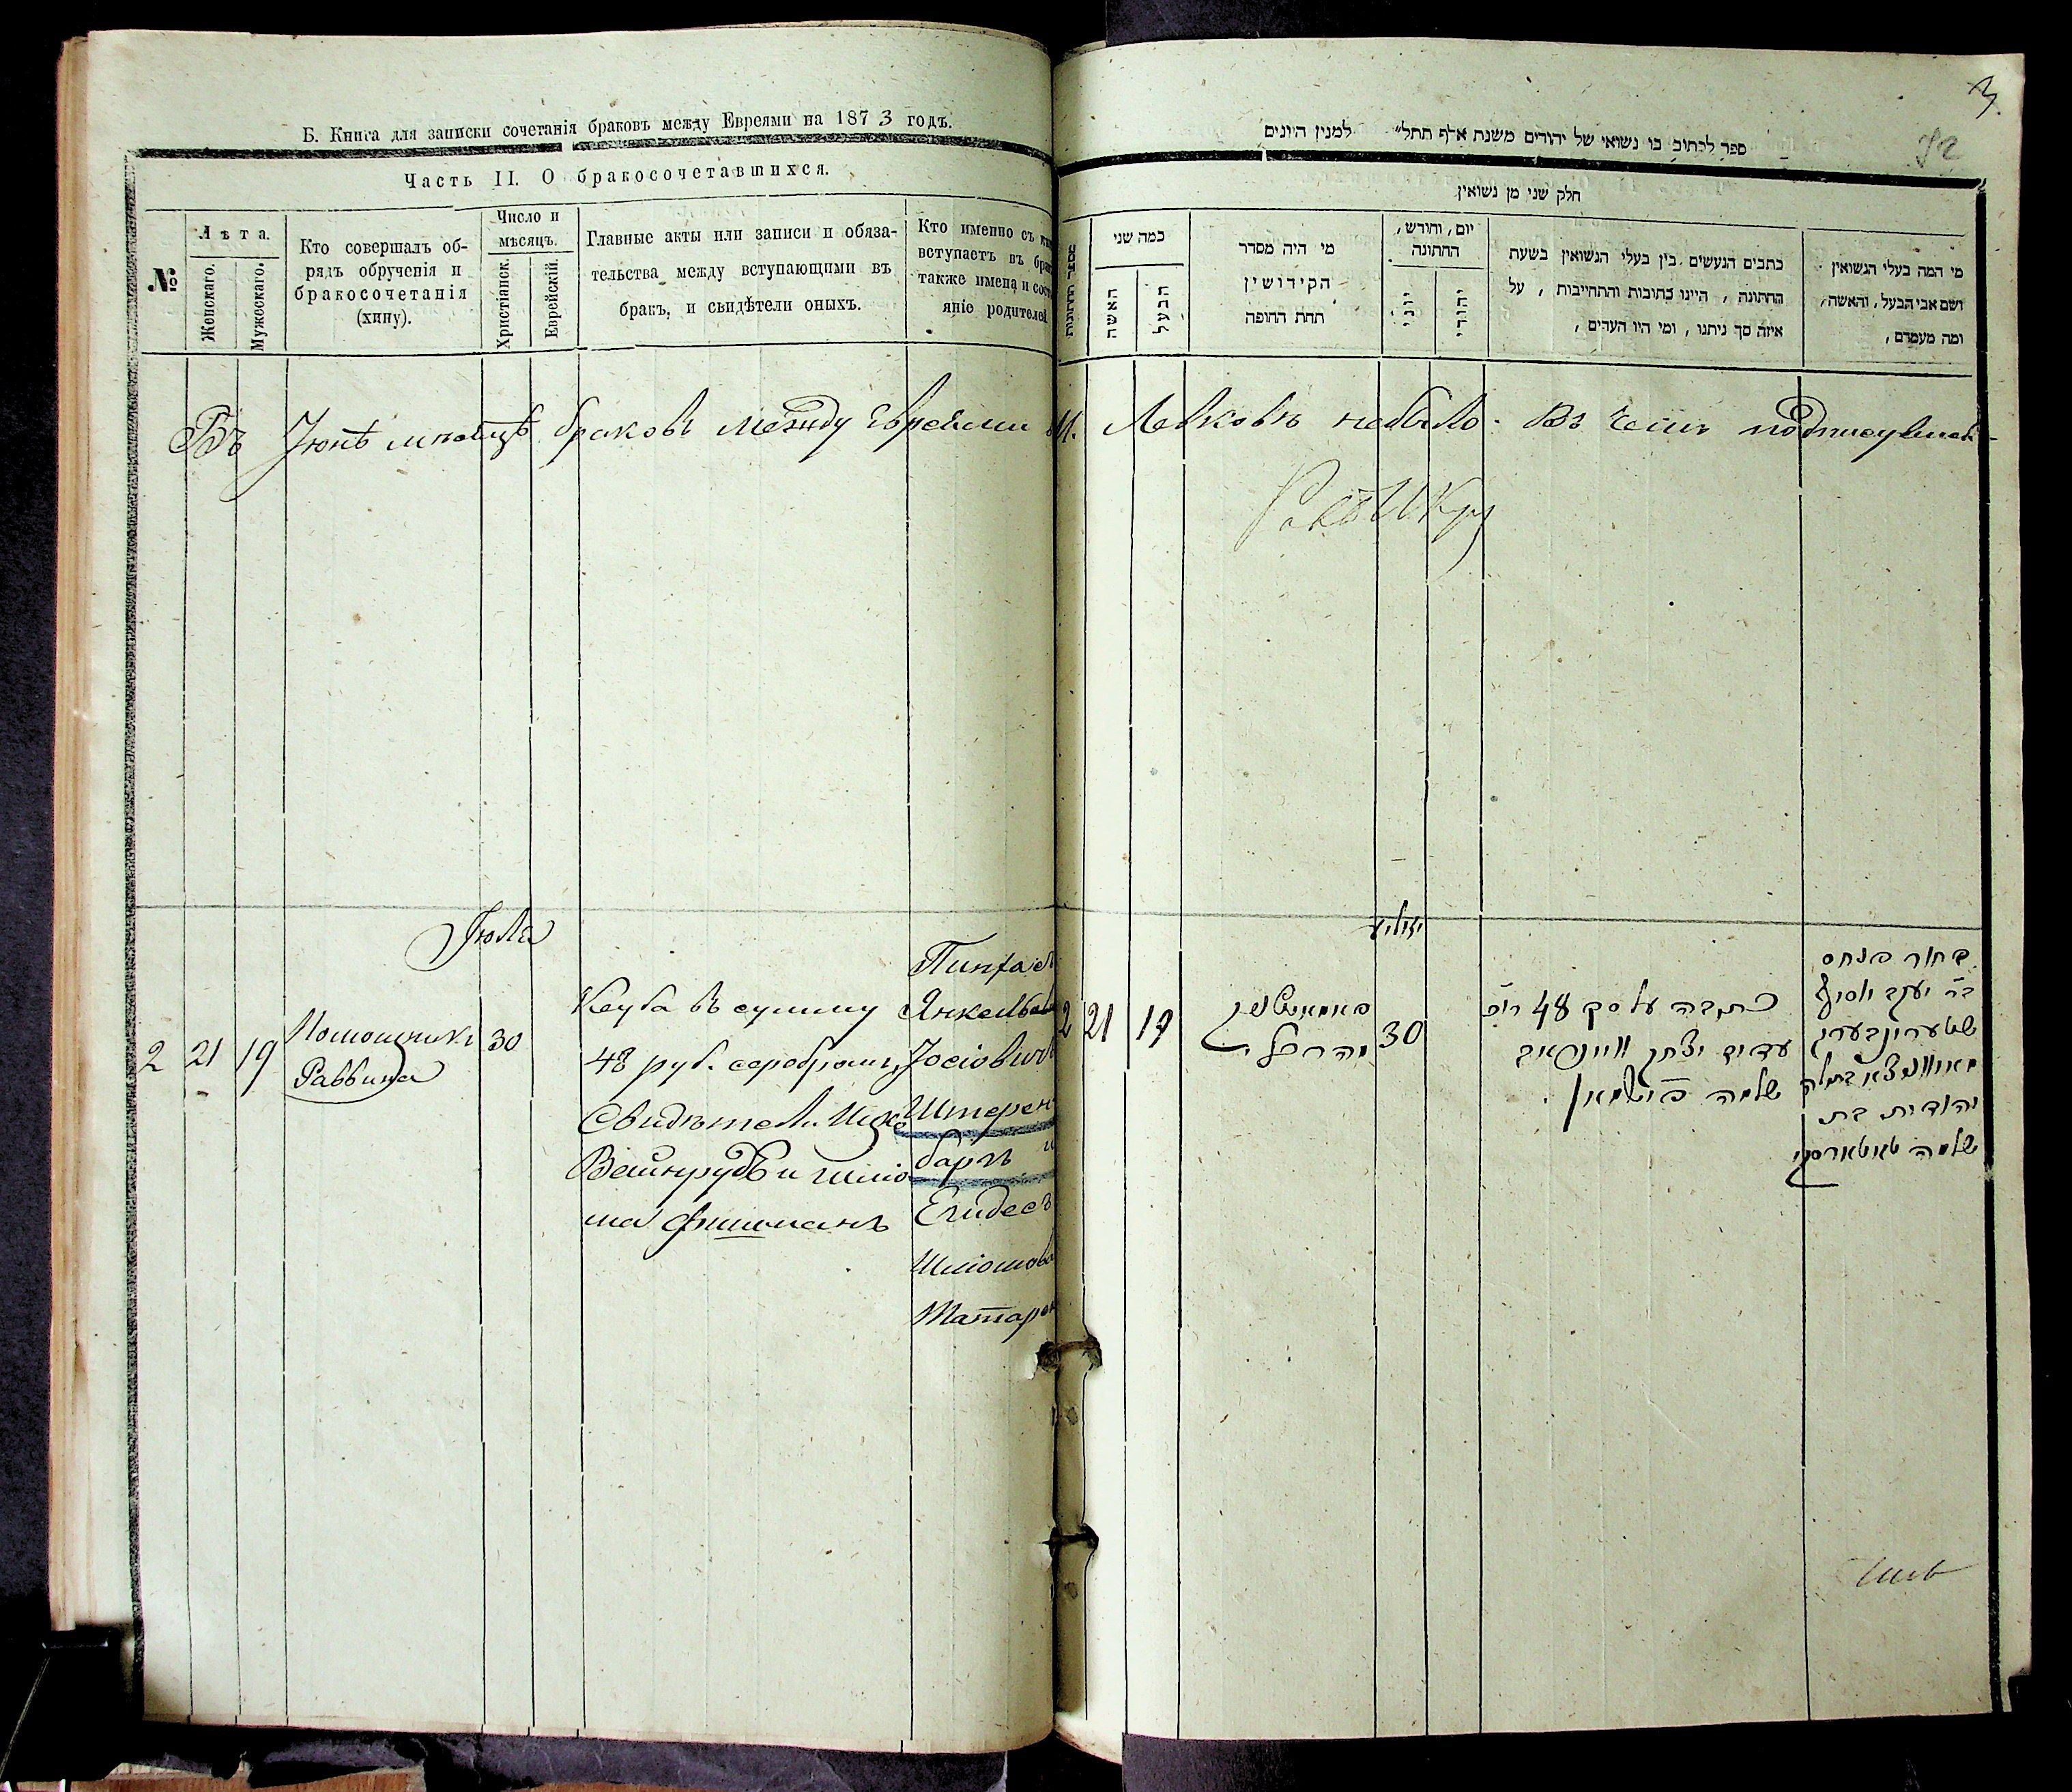 Б. Книга для записки сочетанія браковъ между Евреями на 1873 годъ.
Часть II. О бракосочетавшихся.
№
Лѣта.
Женскаго.
Мужескаго.
Кто совершалъ об-
рядъ обрученія и
бракосочетанія
(хипу).
Число и
мѣсяцъ.
Христіанск.
Еврейскій.
Главные акты или записи и обяза-
тельства между вступающими въ
бракъ, и свидѣтели оныхъ.
Кто именно съ
вступаетъ въ
также имена и
яніе родителей
Въ Іюнѣ мѣсяцѣ браковъ между Евреями
Іюля
2 21 19
Помошникъ
Раввина
30
Кеуба въ сумму
48 руб. серебромъ,
Свидѣтели
Вейнрубъ и Шліо
ма Фишманъ
Пинхасъ
Янкель
Іосіовичъ
Штерен
баргъ и
Егидесъ
Шліомов
Татар
3
92
ספר לכתוב בו נשואי של יהודים משנת אלף תתל״ למנין היונים
חלק שני מן נשואין
מספר החתונות
כמה שני
האשה
הבעל
מי היה מסדר
הקידושין
תחת החופה
יום, וחודש,
החתונה
יוני
יהודי
כתבים הנעשים בין בעלי הנשואין בשעת
החתונה, היינו כתובות והתחייבות, על
איזה סך ניתנו, ומי היו העדים,
מי המה בעלי הנשואין
ושם אבי הבעל, והאשה,
ומה מעמדם,
М. Левковъ небыло. Въ чемъ
יוליא
2 21 19
30
כתובה על סך 48 רו״כ
עדים יצחק וויינרוב
שלמה פישמאן
בחור פנחס
בר יעקב יוסף
שטערינבערג
יהודית בת
שלמה טאטארסקי